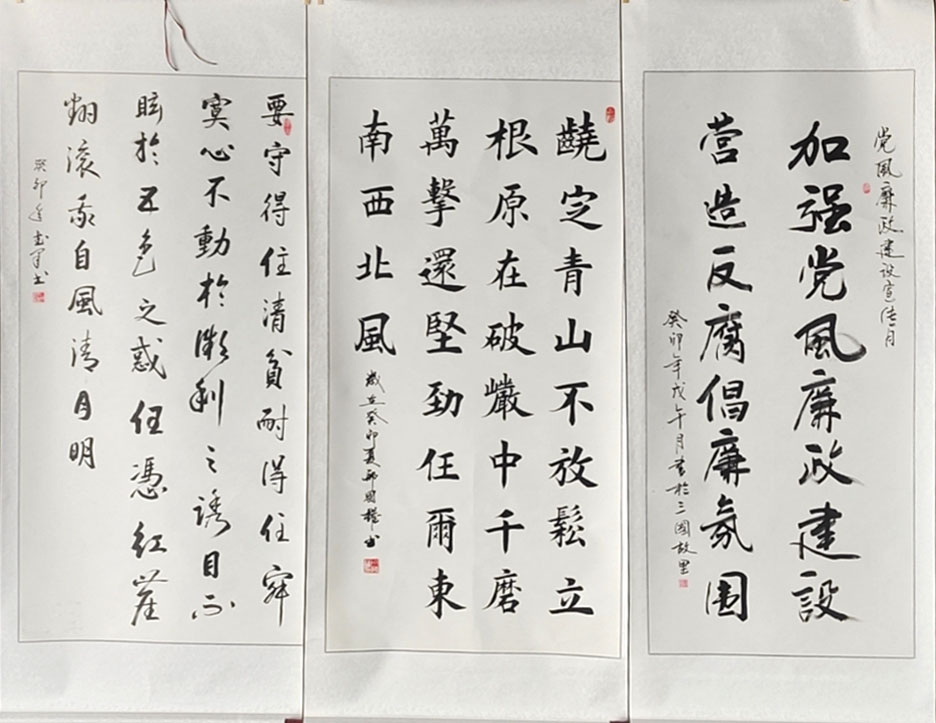 党風廉政建设宣传月
加强党風廉政建設
营造反腐倡廉氛围
癸卯年戊午月書於三國故里
齩定青山不放鬆立
根原在破巖中千磨
萬擊還堅勁任爾東
南西北風
歲在癸卯夏
要守得住清貧耐得住寂
寞心不動於微利之誘目不
眩於五色之惑任憑紅塵
翻滚我自風清月明
癸卯年